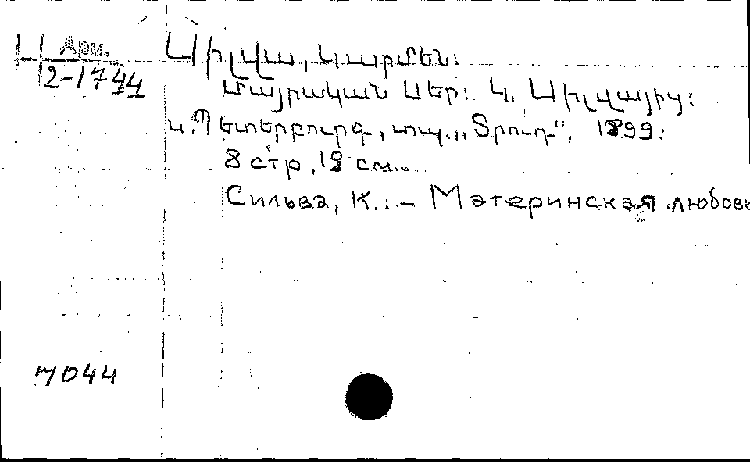 Арм.
2-1744
Սիլվա, Կարմեն:
Մայրական սեր: Կ. Սիլվայից:
Ս. Պետերբուրգ, տպ. „Տրուդ", 1899:
8 стр, 19 см.
Сильва, К. - Материнская любовь
7044